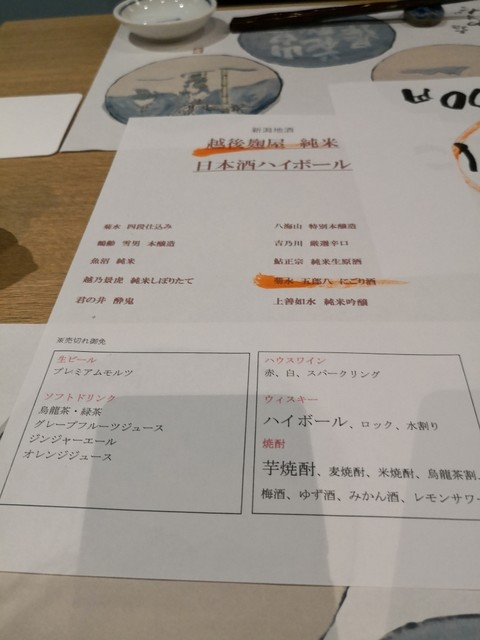 新潟地酒
越後麹屋 純米
日本酒ハイボール
菊水 四段仕込み
鶴齢 雪男 本醸造
魚沼 純米
越乃景虎 純米しぼりたて
君の井 酔鬼
八海山 特別本醸造
吉乃川 厳選辛口
鮎正宗 純米生原酒
菊水 五郎八 にごり酒
上善如水 純米吟醸
※売切れ御免
生ビール
プレミアムモルツ
ソフトドリンク
烏龍茶・緑茶
グレープフルーツジュース
ジンジャーエール
オレンジジュース
ハウスワイン
赤、白、スパークリング
ウィスキー
ハイボール、ロック、水割り
焼酎
芋焼酎、麦焼酎、米焼酎、烏龍茶割、
梅酒、ゆず酒、みかん酒、レモンサワー